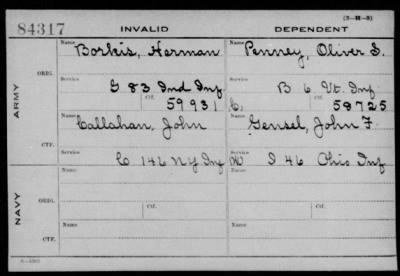 (3-H-3)
84317 INVALID DEPENDENT
Name Borkis, Herman Name Penney, Oliver S.
ORIG.
Service Service
G 83 Ind Inf B 6 Vt. Inf
Ctf. 59931 Ctf. 58725
ARMY
Name Callahan, John Name Gensel, John F.
CTF.
Service Service
C 146 NY Inf I 46 Ohio Inf
Name Name
ORIG.
NAVY
Service Ctf. Service Ctf.
Name Name
CTF.
Service Service